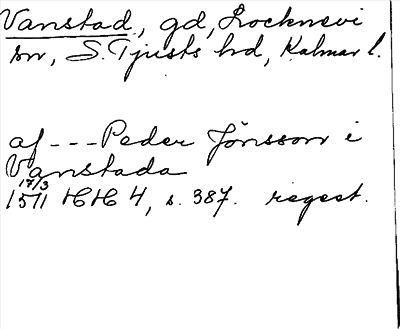 Vanstad, gd, Locknevi
sn, S. Tjusts hd, Kalmar l.
af --- Peder Jönsson i
Vanstada
17/3
1571 HH 4, s. 387. regest.